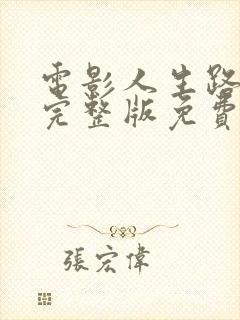 電影人生路
完整版免費
張宏偉